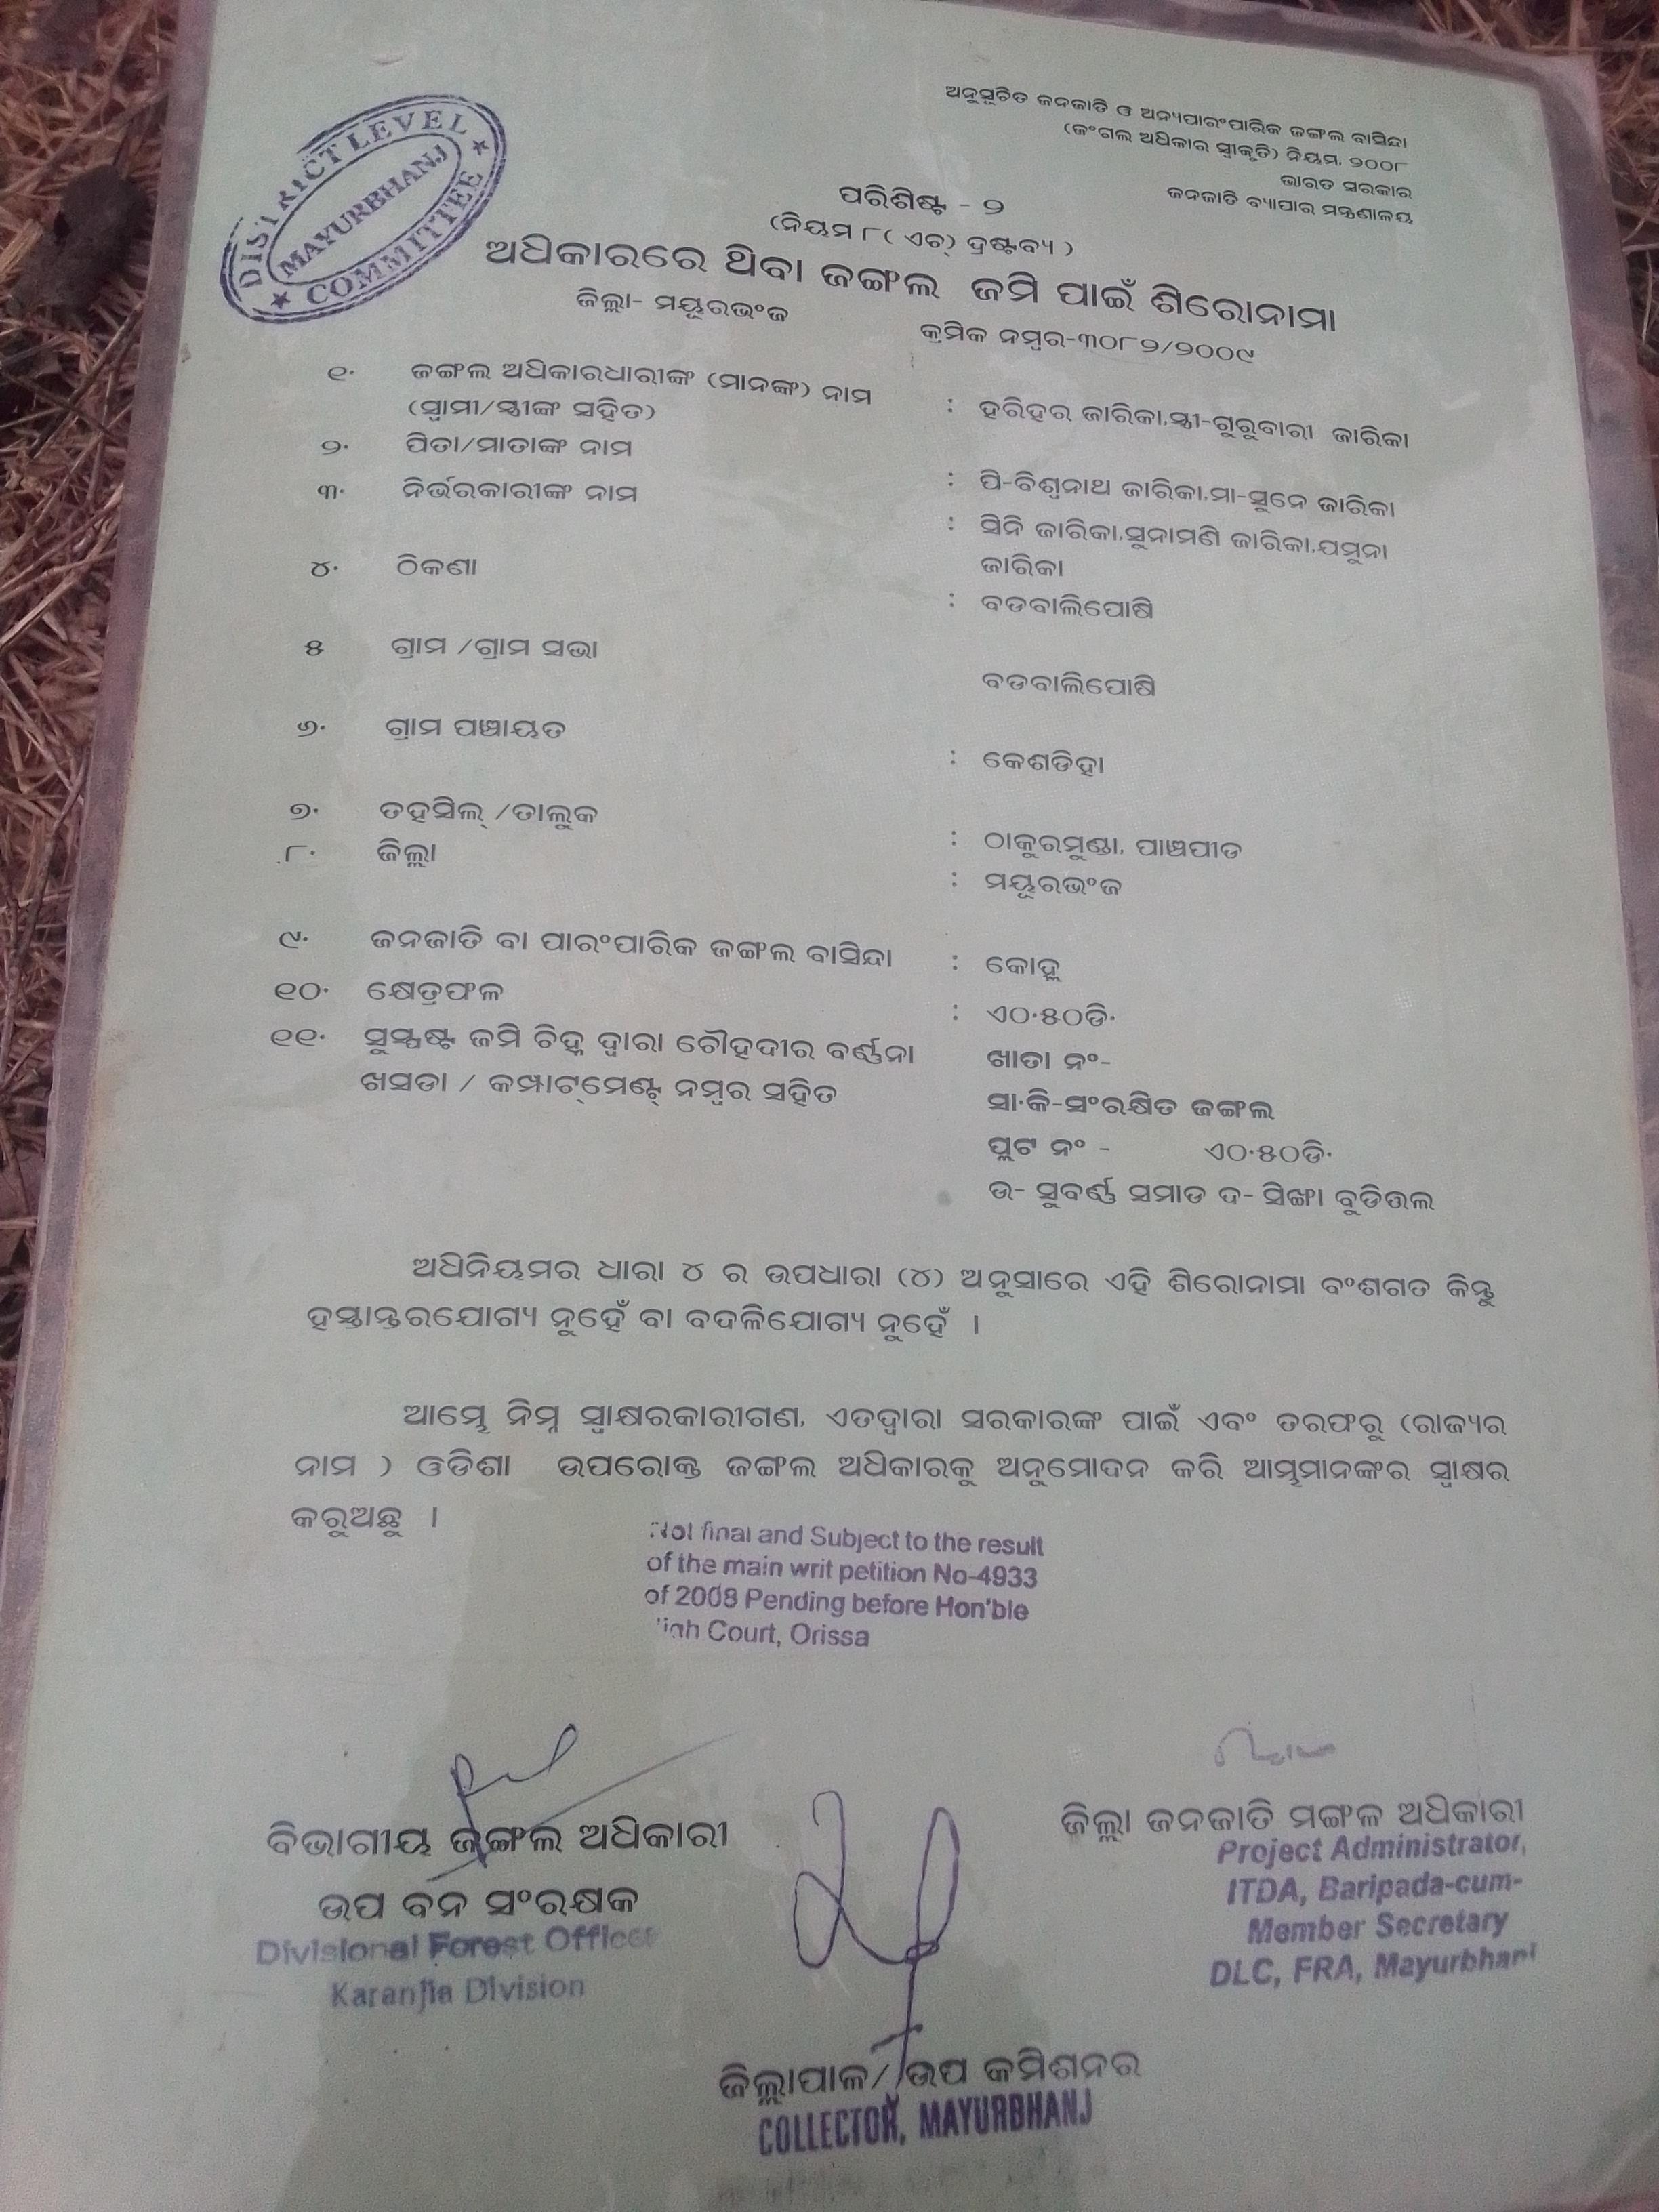 DISTRICT LEVEL
MAYURBHANJ
COMMITTEE
ଅନୁସୂଚିତ ଜନଜାତି ଓ ଅନ୍ୟପାରଂପାରିକ ଜଙ୍ଗଲ ବାସିନ୍ଦା
(ଜଂଗଲ ଅଧିକାର ସ୍ୱୀକୃତି) ନିୟମ, ୨୦୦୮
ଭାରତ ସରକାର
ଜନଜାତି ବ୍ୟାପାର ମନ୍ତ୍ରଣାଳୟ
ପରିଶିଷ୍ଟ - ୨
(ନିୟମ ୮( ଏଚ୍) ଦ୍ରଷ୍ଟବ୍ୟ )
ଅଧିକାରରେ ଥିବା ଜଙ୍ଗଲ ଜମି ପାଇଁ ଶିରୋନାମା
ଜିଲ୍ଲା- ମୟୂରଭଂଜ
କ୍ରମିକ ନମ୍ବର-୩୦୮୨/୨୦୦୯
୧. ଜଙ୍ଗଲ ଅଧିକାରଧାରୀଙ୍କ (ମାନଙ୍କ) ନାମ
(ସ୍ୱାମୀ/ସ୍ତ୍ରୀଙ୍କ ସହିତ) : ହରିହର ଜାରିକା,ସ୍ତ୍ରୀ-ଗୁରୁବାରୀ ଜାରିକା
୨. ପିତା/ମାତାଙ୍କ ନାମ : ପି-ବିଶ୍ୱନାଥ ଜାରିକା,ମା-ସୁନେ ଜାରିକା
୩. ନିର୍ଭରକାରୀଙ୍କ ନାମ : ସିନି ଜାରିକା,ସୁନାମଣି ଜାରିକା,ଯମୁନା
ଜାରିକା
୪. ଠିକଣା : ବଡବାଲିପୋଷି
୫ ଗ୍ରାମ /ଗ୍ରାମ ସଭା ବଡବାଲିପୋଷି
୬. ଗ୍ରାମ ପଞ୍ଚାୟତ : କେଶଡିହା
୭. ତହସିଲ୍ /ତାଲୁକ : ଠାକୁରମୁଣ୍ଡା, ପାଞ୍ଚପୀଡ
୮. ଜିଲ୍ଲା : ମୟୂରଭଂଜ
୯. ଜନଜାତି ବା ପାରଂପାରିକ ଜଙ୍ଗଲ ବାସିନ୍ଦା : କୋହ୍ଲ
୧୦. କ୍ଷେତ୍ରଫଳ : ଏ୦.୫୦ଡି.
୧୧. ସୁସ୍ପଷ୍ଟ ଜମି ଚିହ୍ନ ଦ୍ୱାରା ଚୌହଦୀର ବର୍ଣ୍ଣନା ଖାତା ନଂ-
ଖସଡା / କମ୍ପାଟ୍‌ମେଣ୍ଟ୍ ନମ୍ବର ସହିତ ସା.କି-ସଂରକ୍ଷିତ ଜଙ୍ଗଲ
ପ୍ଲଟ ନଂ - ଏ୦.୫୦ଡି.
ଉ- ସୁବର୍ଣ୍ଣ ସମାଡ ଦ- ସିଙ୍ଗା ବୁଡିଉଲ
ଅଧିନିୟମର ଧାରା ୪ ର ଉପଧାରା (୪) ଅନୁସାରେ ଏହି ଶିରୋନାମା ବଂଶଗତ କିନ୍ତୁ
ହସ୍ତାନ୍ତରଯୋଗ୍ୟ ନୁହେଁ ବା ବଦଳିଯୋଗ୍ୟ ନୁହେଁ ।
ଆମ୍ଭେ ନିମ୍ନ ସ୍ୱାକ୍ଷରକାରୀଗଣ, ଏତଦ୍ୱାରା ସରକାରଙ୍କ ପାଇଁ ଏବଂ ତରଫରୁ (ରାଜ୍ୟର
ନାମ ) ଓଡିଶା ଉପରୋକ୍ତ ଜଙ୍ଗଲ ଅଧିକାରକୁ ଅନୁମୋଦନ କରି ଆମ୍ଭମାନଙ୍କର ସ୍ୱାକ୍ଷର
କରୁଅଛୁ ।
Not final and Subject to the result
of the main writ petition No-4933
of 2008 Pending before Hon'ble
High Court, Orissa
ବିଭାଗୀୟ ଜଙ୍ଗଲ ଅଧିକାରୀ
ଉପ ବନ ସଂରକ୍ଷକ
Divisional Forest Officer
Karanjia Division
ଜିଲ୍ଲା ଜନଜାତି ମଙ୍ଗଳ ଅଧିକାରୀ
Project Administrator,
ITDA, Baripada-cum-
Member Secretary
DLC, FRA, Mayurbhanj
ଜିଲ୍ଲାପାଳ/ ଉପ କମିଶନର
COLLECTOR, MAYURBHANJ